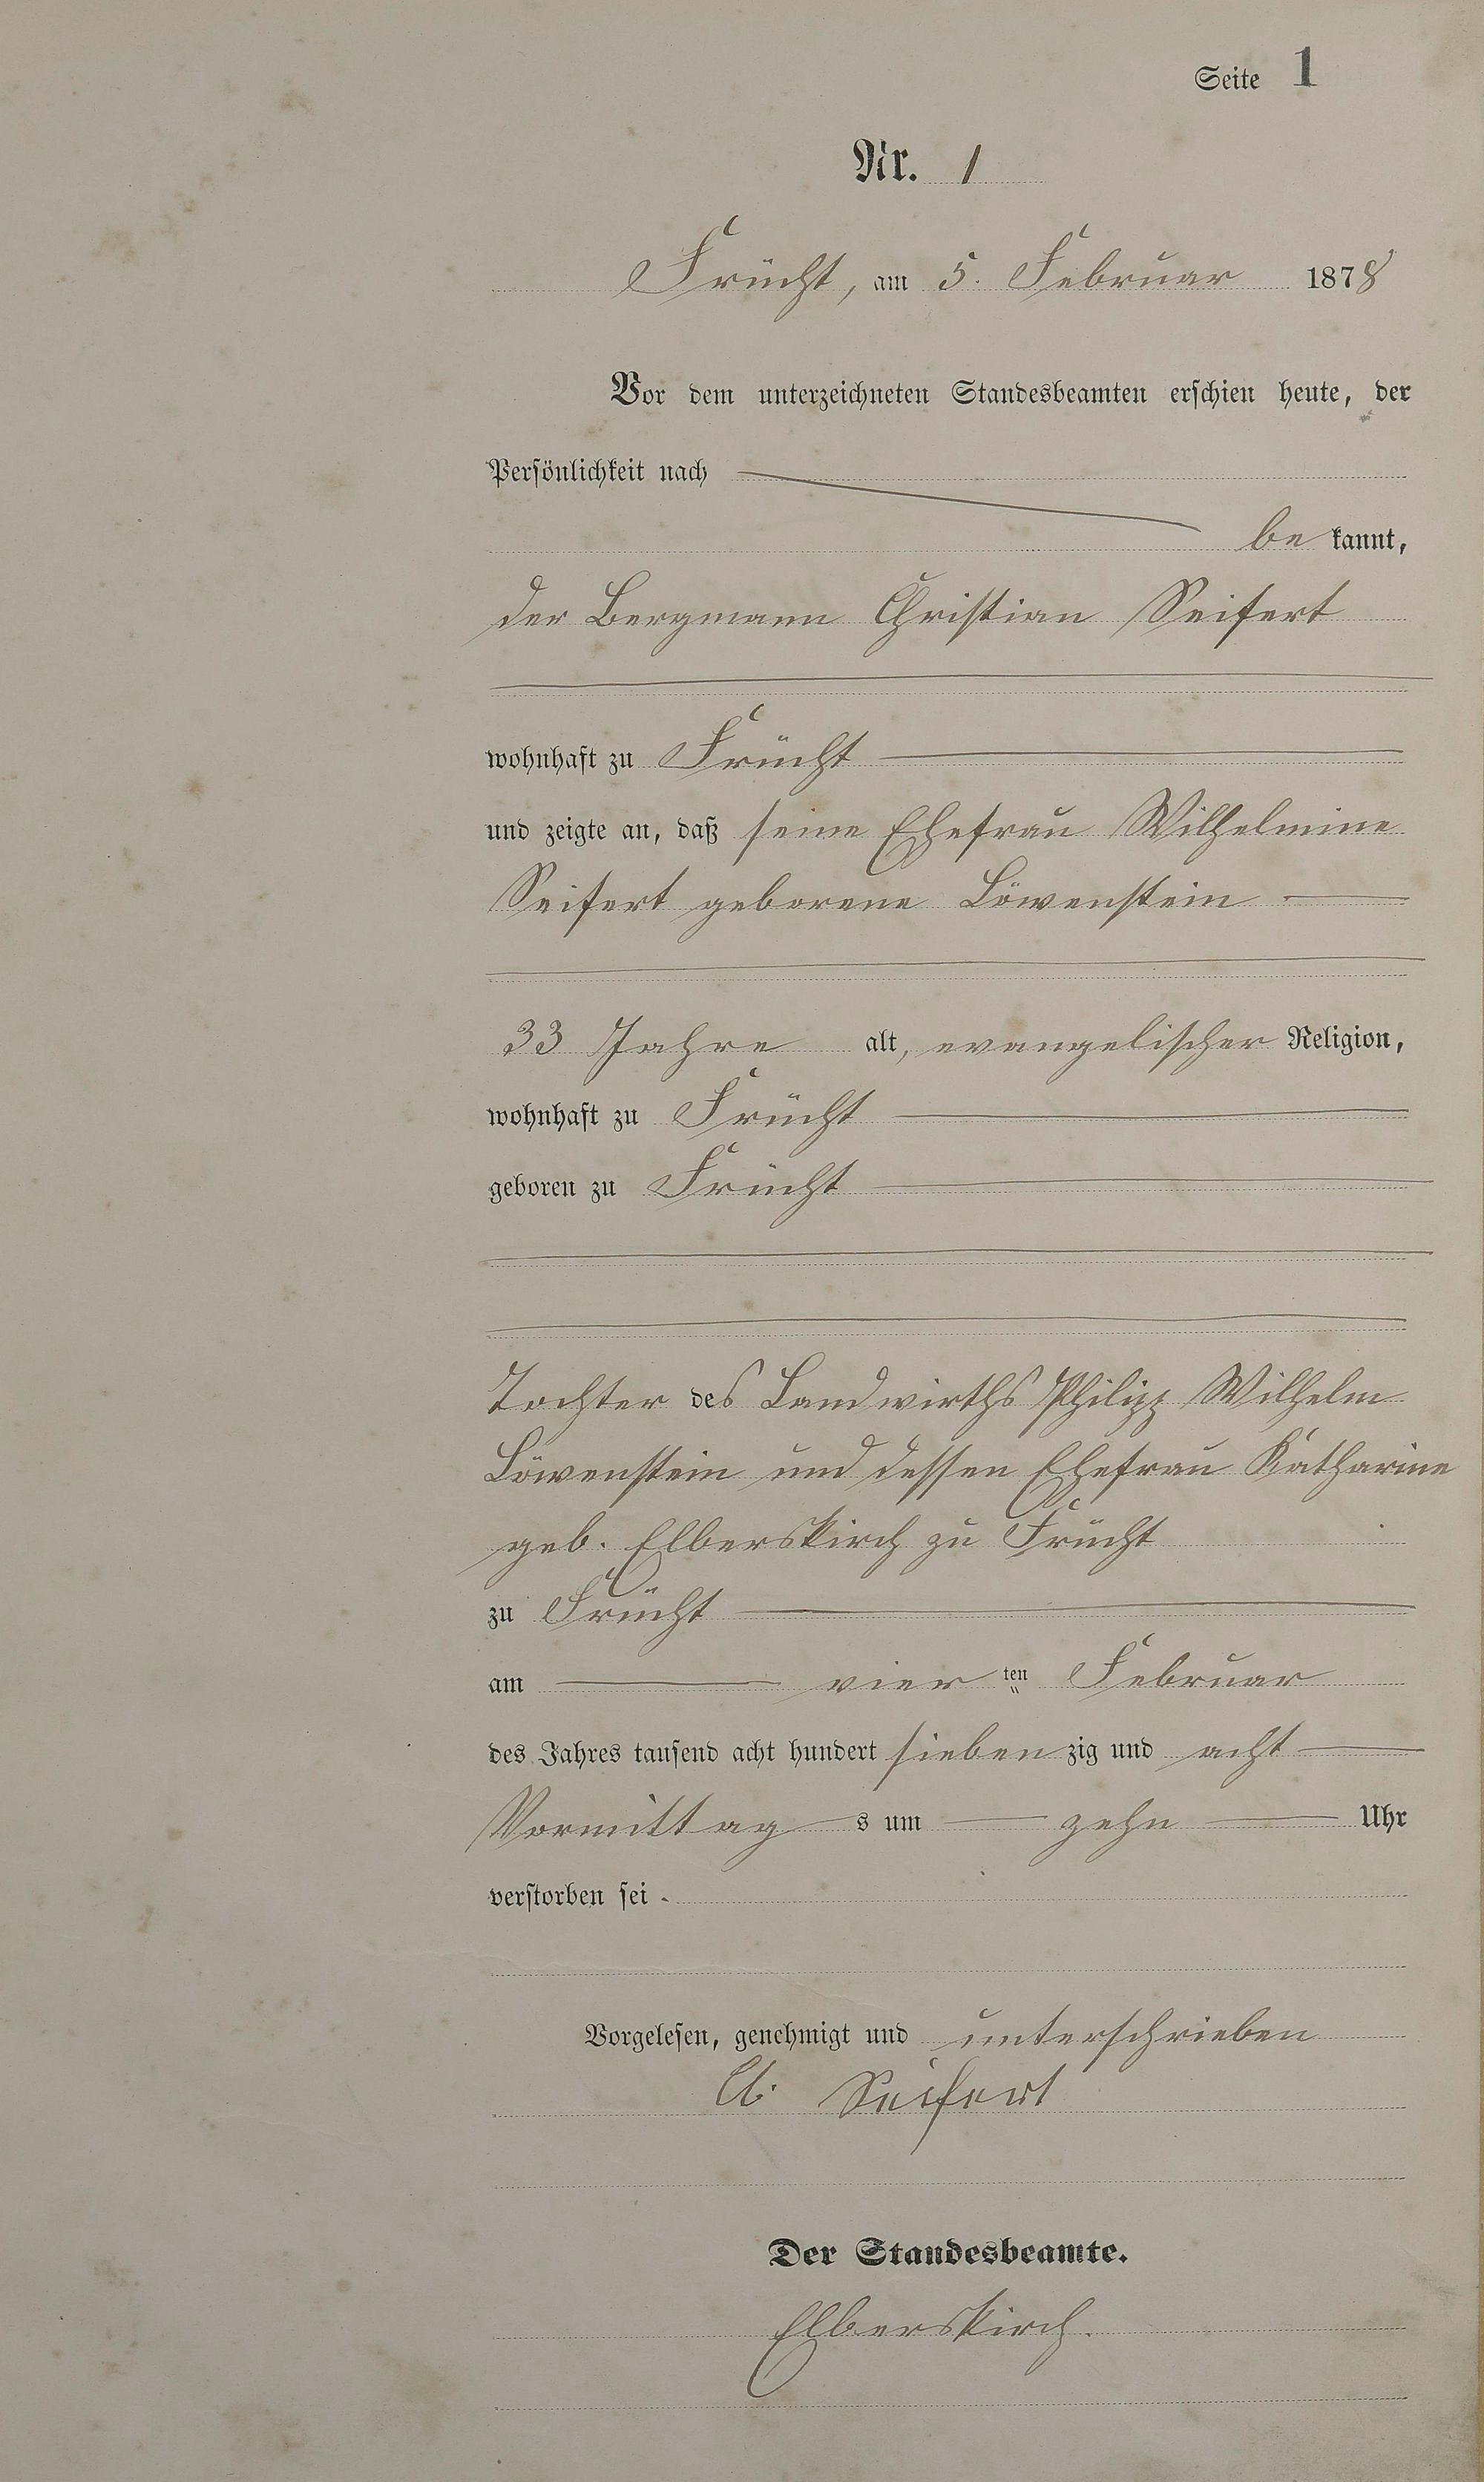 Seite 1
Nr. 1
Frücht, am 5. Februar 1878
Vor dem unterzeichneten Standesbeamten erschien heute, der
Persönlichkeit nach
be kannt,
der Bergmann Christian Seifert
wohnhaft zu Frücht
und zeigte an, daß seine Ehefrau Wilhelmine
Seifert geborene Löwenstein
33 Jahre alt, evangelischer Religion,
wohnhaft zu Frücht
geboren zu Frücht
Tochter des Landwirths Philipp Wilhelm
Löwenstein und dessen Ehefrau Katharine
geb. Elberskirch zu Frücht
zu Frücht
am vier ten Februar
des Jahres tausend acht hundert sieben zig und acht
Vormittag s um zehn Uhr
verstorben sei.
Vorgelesen, genehmigt und unterschrieben
Seifert
Der Standesbeamte.
Elberskirch.